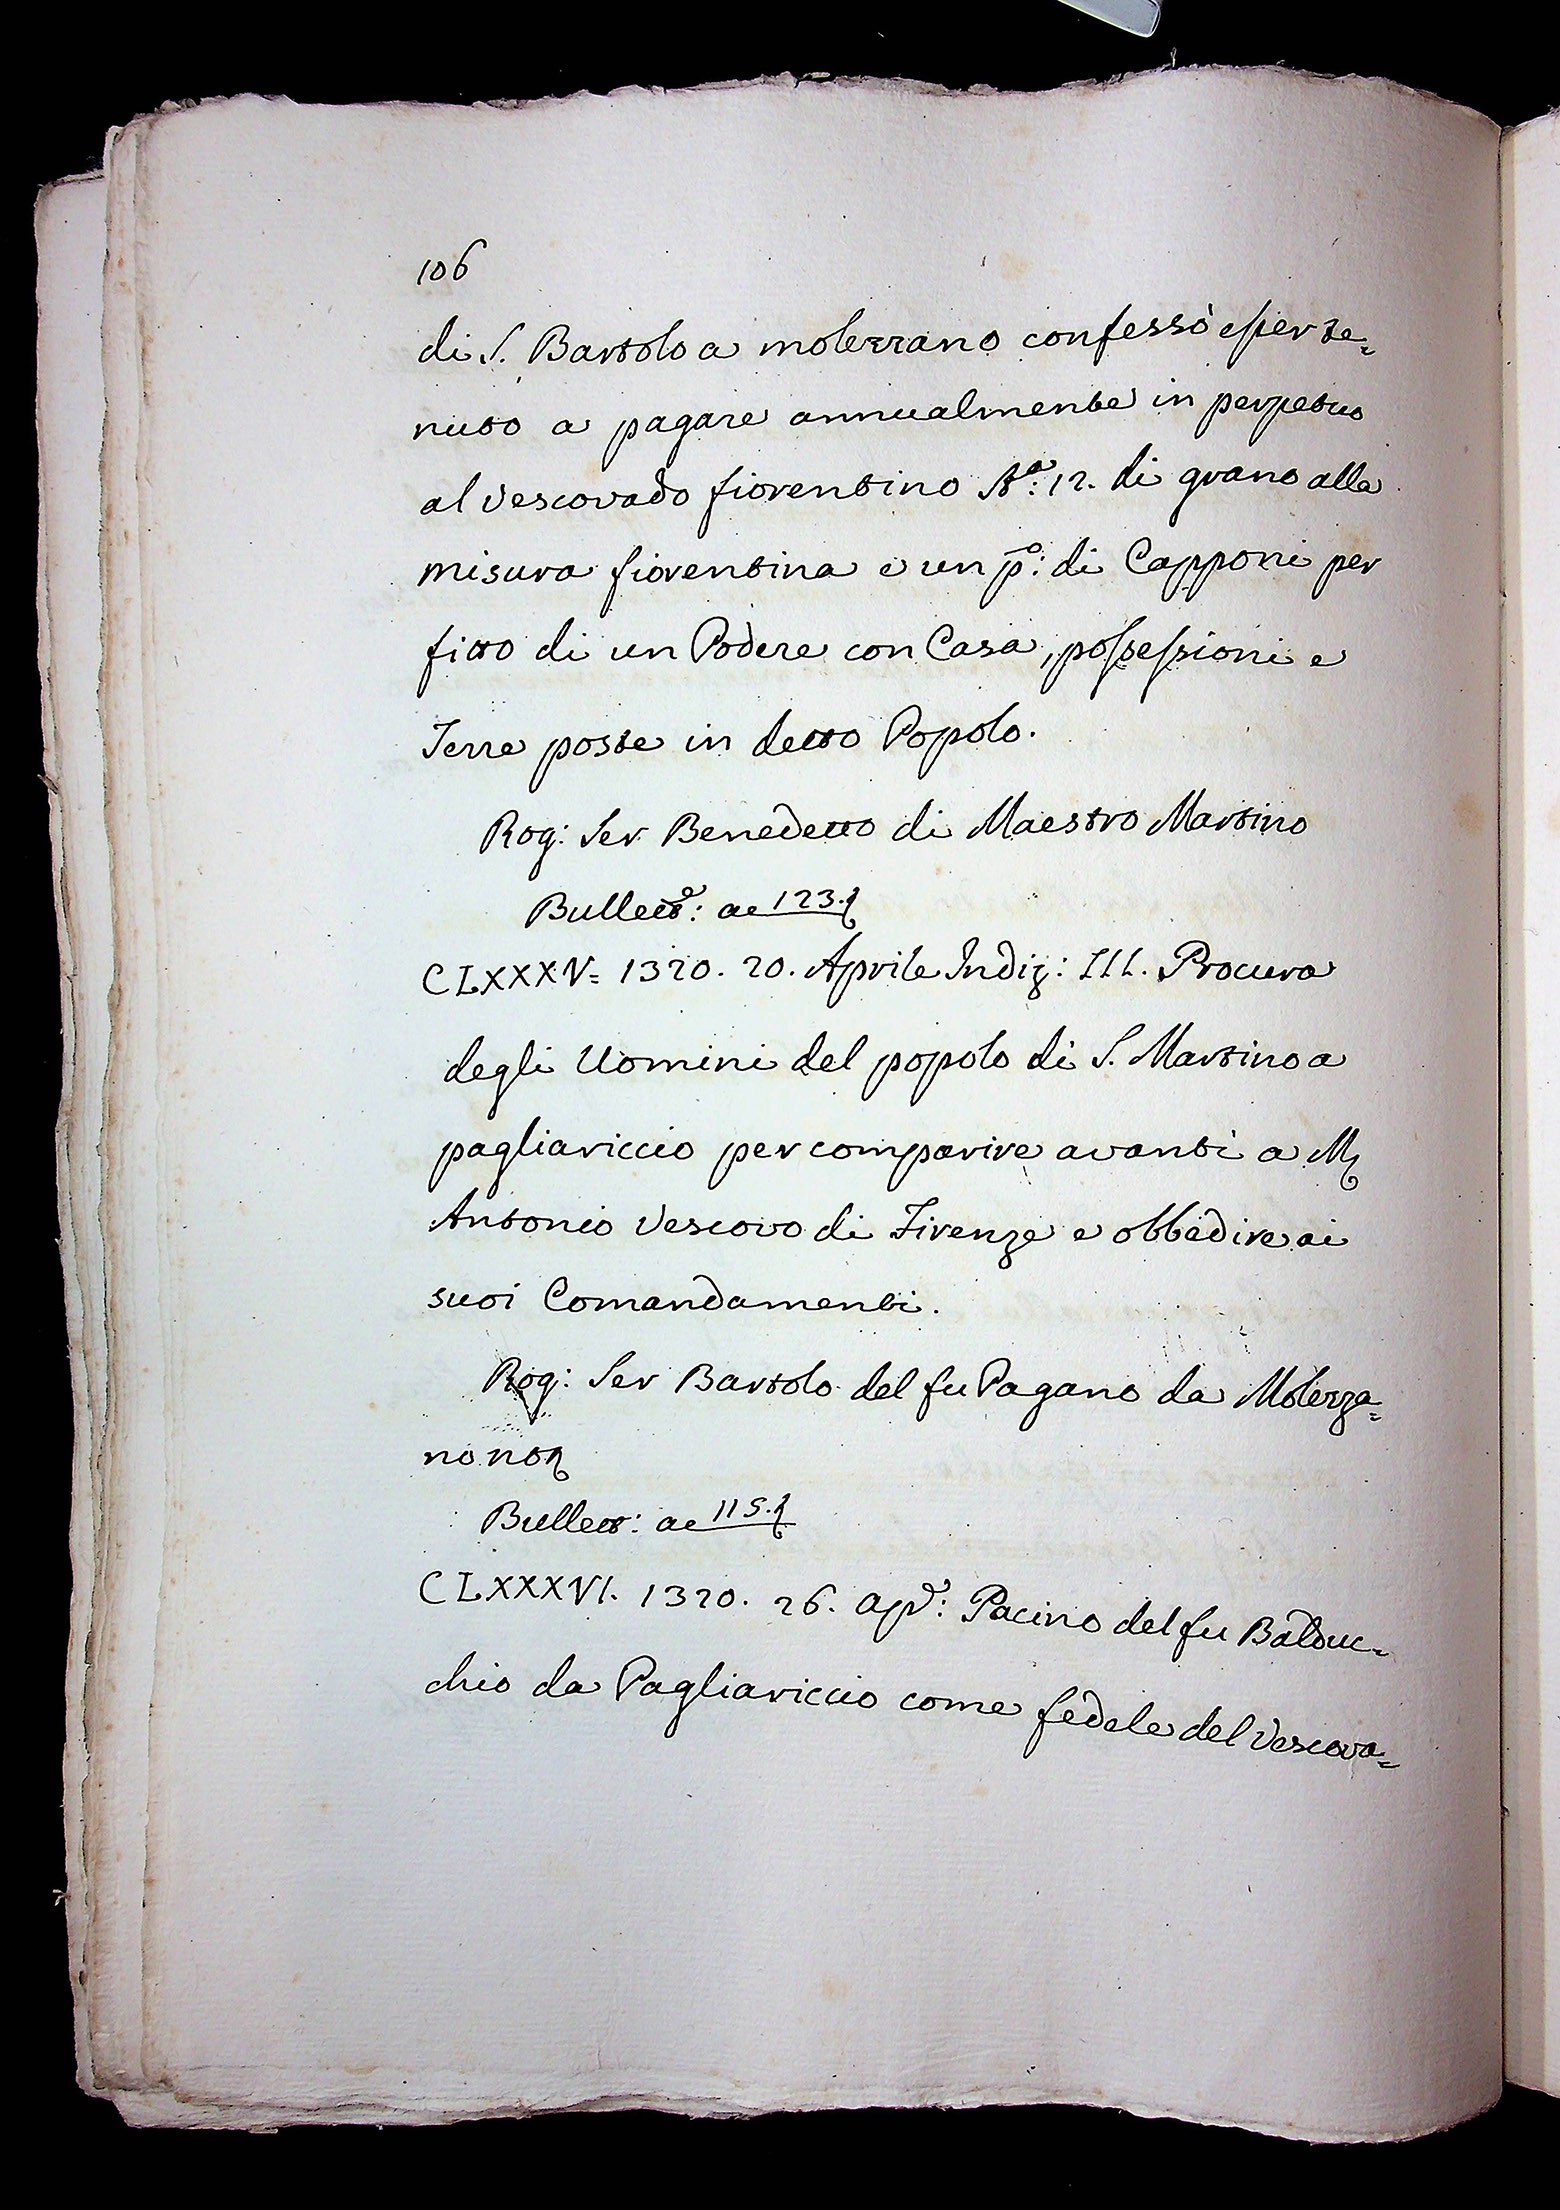 106
di S. Bartolo a molezzano confessò esser te=
nuto a pagare annualmente in perpetuo
al Vescovado fiorentino St.ª: 12. di grano alla
misura fiorentina e un p.º: di Capponi per
fitto di un Podere con Casa, possessioni e
Terre poste in detto Popolo.
Rog: Ser Benedetto di Maestro Martino
Bullett.º: ac 123.
CLXXXV= 1320. 20. Aprile Indiz: III. Procura
degli Uomini del popolo di S. Martino a
pagliariccio per comparire avanti a M
Antonio Vescovo di Firenze e obbedire ai
suoi Comandamenti.
Rog: Ser Bartolo del fu Pagano da Molezza=
no not
Bullett: ac 115.
CLXXXVI. 1320. 26. apr.e: Pacino del fu Balduc=
chio da Pagliariccio come fedele del Vescova=